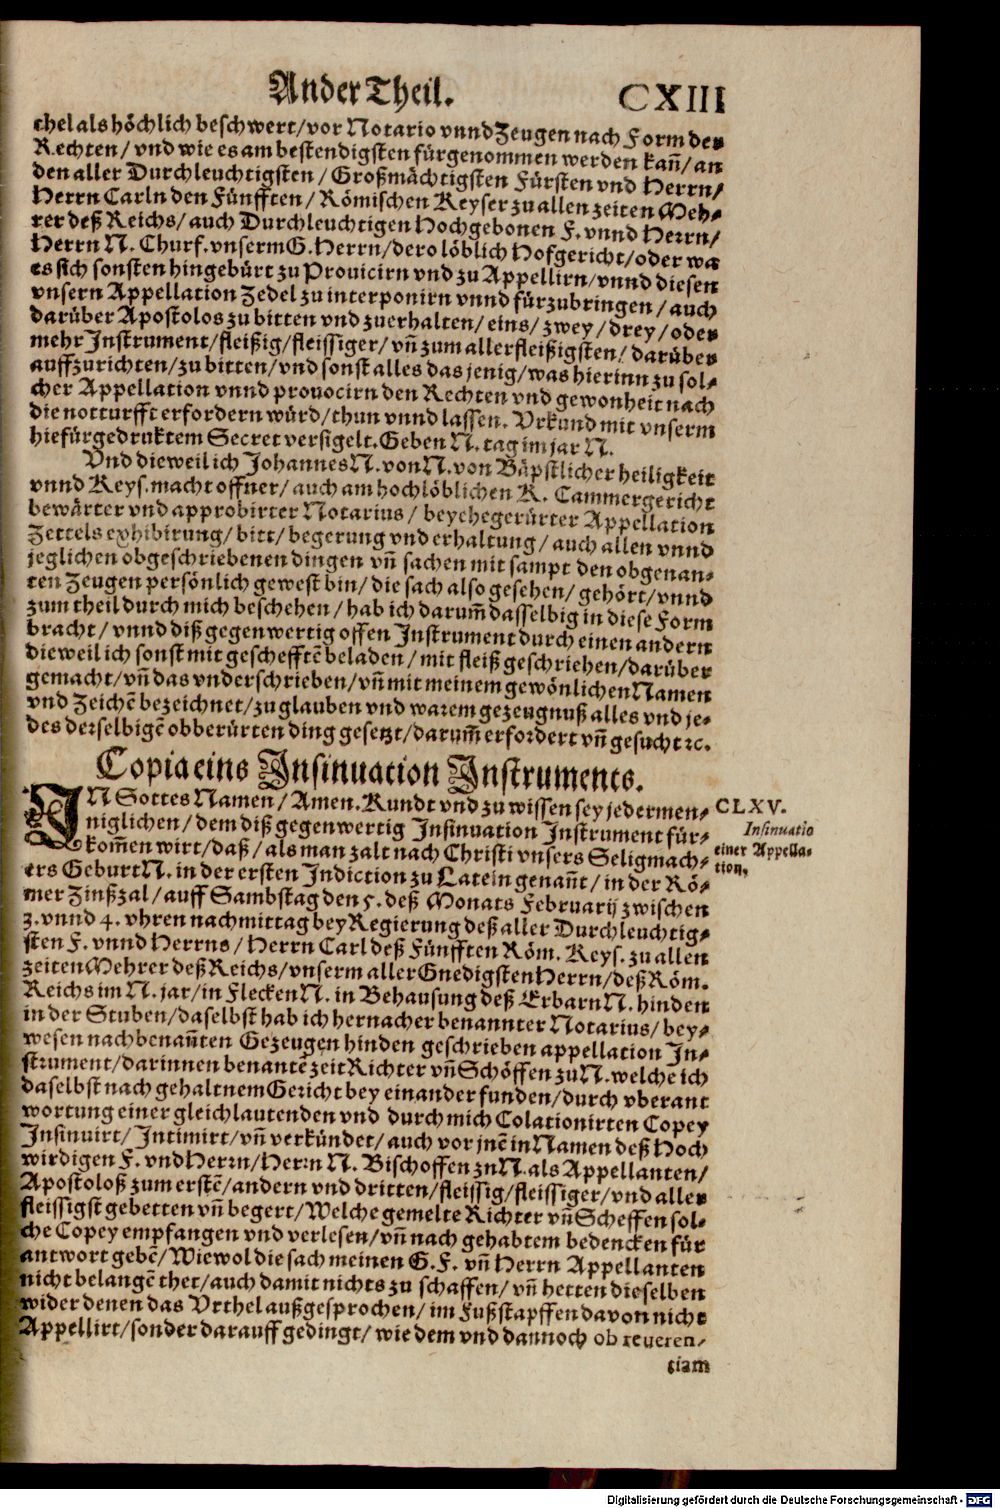 Ander Theil. CXIII
thel als höchlich beschwert/vor Notario vnnd Zeugen nach Form der
Rechten/ vnd wie es am bestendigsten fürgenommen werden kañ/an
den aller Durchleuchtigsten/ Großmächtigsten Fürsten vnd Herrn/
Herrn Carln den Fünfften/ Römischen Keyser zu allen zeiten Meh-
rer deß Reichs/ auch Durchleuchtigen Hochgebonen F. vnnd Herrn/
Herrn N. Churf. vnserm G. Herrn/ dero löblich Hofgericht/oder wa
es sich sonsten hingebürt zu Prouicirn vnd zu Appellirn/vnnd diesen
vnsern Appellation Zedel zu interponirn vnnd fürzubringen/ auch
darüber Apostolos zu bitten vnd zuerhalten/ eins/ zwey/ drey/ oder
mehr Instrument/fleißig/fleissiger/vñ zum allerfleißigsten/ darüber
auffzurichten/zu bitten/vnd sonst alles das jenig/was hierinn zu sol-
cher Appellation vnnd prouocirn den Rechten vnd gewonheit nach
die notturfft erfordern würd/thun vnnd lassen. Vrkund mit vnserm
hiefürgedruktem Secret versigelt. Geben N. tag im jar N.
Vnd dieweil ich Johannes N. von N. von Bäpstlicher heiligkeit
vnnd Keys. macht offner/ auch am hochlöblichen K. Cammergericht
bewärter vnd approbirter Notarius/ bey ehegerürter Appellation
Zettels exhibirung/ bitt/ begerung vnd erhaltung/ auch allen vnnd
jeglichen obgeschriebenen dingen vñ sachen mit sampt den obgenan-
ten Zeugen persönlich gewest bin/ die sach also gesehen/ gehört/vnnd
zum theil durch mich beschehen/ hab ich darum̃ dasselbig in diese Form
bracht/ vnnd diß gegenwertig offen Instrument durch einen andern
dieweil ich sonst mit geschefftẽ beladen/ mit fleiß geschriehen/darüber
gemacht/vñ das vnderschrieben/vñ mit meinem gewönlichen Namen
vnd Zeichẽ bezeichnet/zu glauben vnd warem gezeugnuß alles vnd je-
des derselbigẽ obberürten ding gesetzt/darum̃ erfordert vñ gesucht ꝛc.
Copia eins Insinuation Instruments.
IN Gottes Namen/ Amen. Kundt vnd zu wissen sey jedermen-
niglichen/ dem diß gegenwertig Insinuation Instrument für-
kom̃en wirt/daß/als man zalt nach Christi vnsers Seligmach-
ers Geburt N. in der ersten Indiction zu Latein genañt/in der Rö-
mer Zinßzal/auff Sambstag den 5. deß Monats Februarij zwischen
3. vnnd 4. vhren nachmittag bey Regierung deß aller Durchleuchtig-
sten F. vnnd Herrns/ Herrn Carl deß Fünfften Röm. Keys. zu allen
zeiten Mehrer deß Reichs/vnserm aller Gnedigsten Herrn/deß Röm.
Reichs im N. jar/in Flecken N. in Behausung deß Erbarn N. hinden
in der Stuben/daselbst hab ich hernacher benannter Notarius/ bey-
wesen nachbenañten Gezeugen hinden geschrieben appellation In-
strument/darinnen benantẽ zeit Richter vñ Schöffen zu N. welche ich
daselbst nach gehaltnem Gericht bey einander funden/durch vberant
wortung einer gleichlautenden vnd durch mich Colationirten Copey
Insinuirt/ Intimirt/vñ verkündet/auch vor jnẽ in Namen deß Hoch
wirdigen F. vnd Herrn/Herrn N. Bischoffen zn N. als Appellanten/
Apostoloß zum erstẽ/andern vnd dritten/fleissig/fleissiger/vnd aller
fleissigst gebetten vñ begert/Welche gemelte Richter vñ Scheffen sol-
che Copey empfangen vnd verlesen/vñ nach gehabtem bedencken für
antwort gebẽ/Wiewol die sach meinen G. F. vñ Herrn Appellanten
nicht belangẽ thet/auch damit nichts zu schaffen/ vñ hetten dieselben
wider denen das Vrthel außgesprochen/ im Fußstapffen davon nicht
Appellirt/sonder darauff gedingt/ wie dem vnd dannoch ob reueren-
tiam
CLXV.
Insinuatio
einer Appella-
tion.
Digitalisierung gefördert durch die Deutsche Forschungsgemeinschaft - DFG